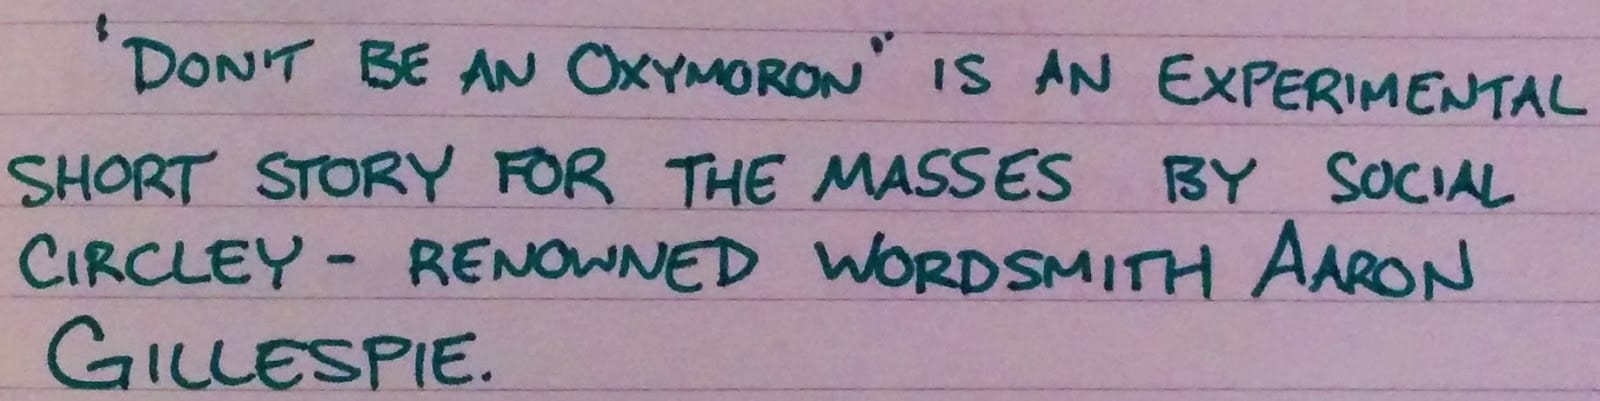 'Don't be an Oxymoron" is an Experimental
short story for the masses by social
circley - renowned wordsmith Aaron
Gillespie.